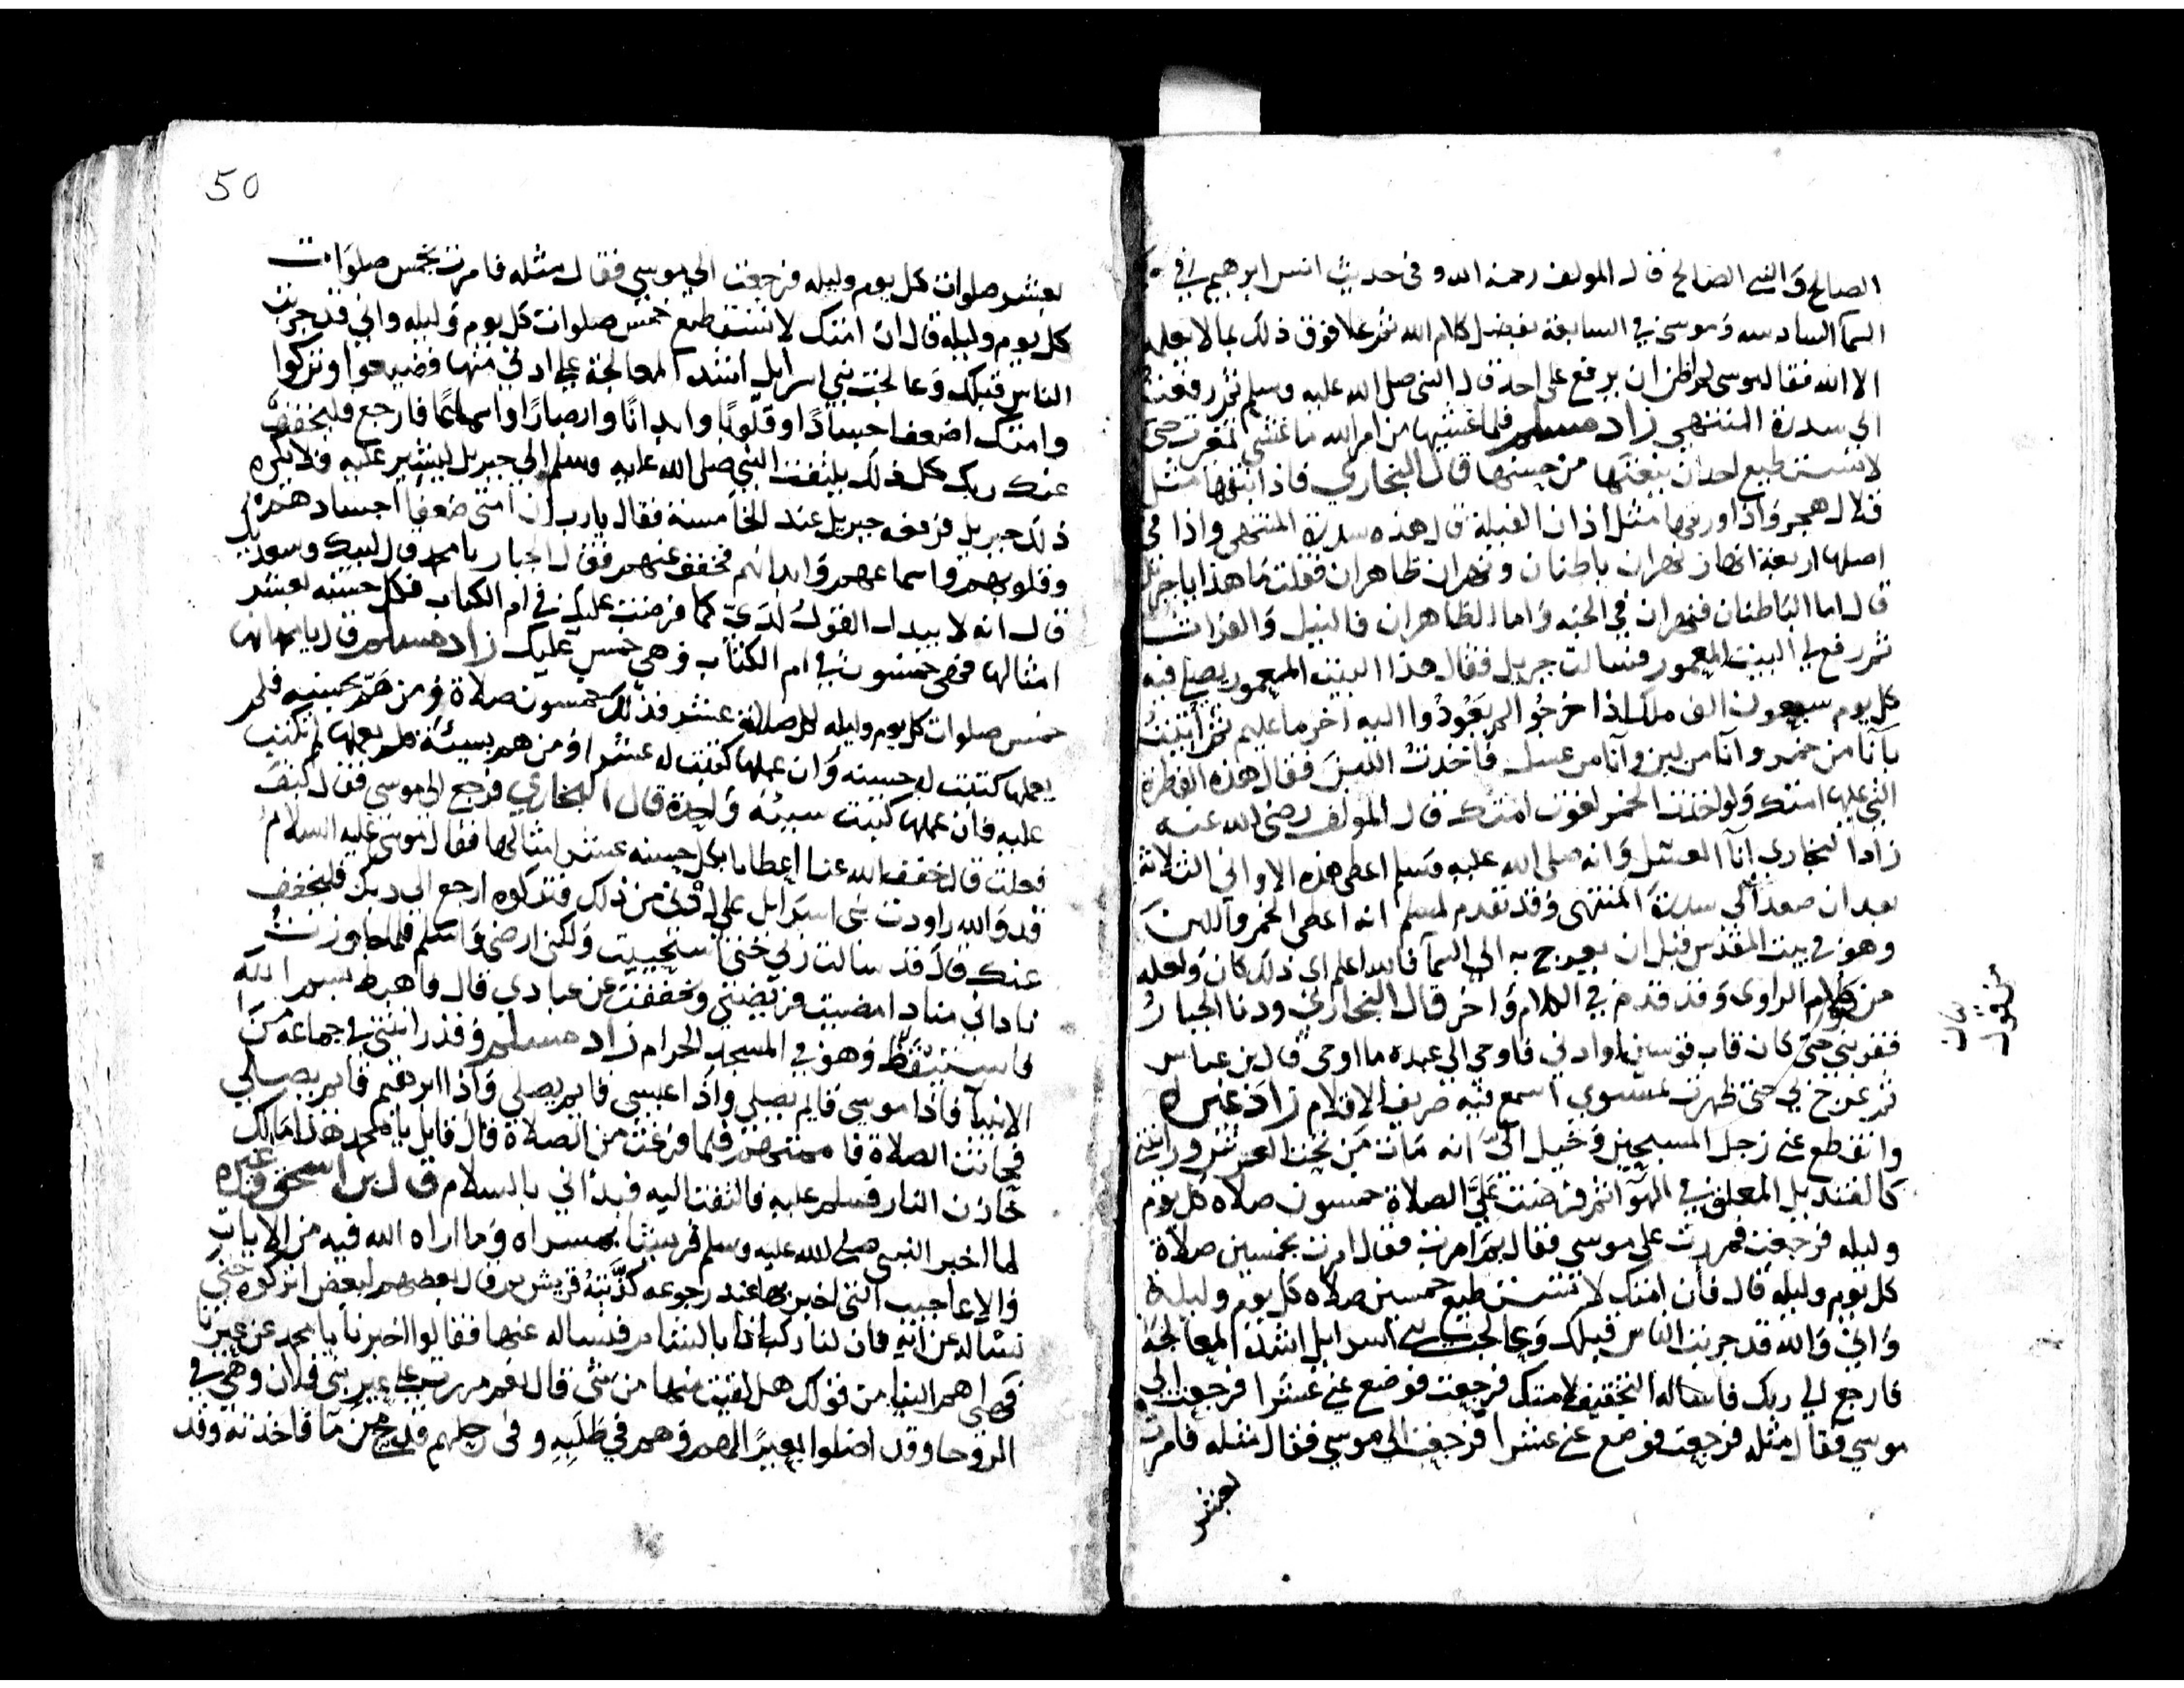 الصالح والنبي الصالح قال المولف رحمه الله وفي حديث انس ابرهيم في
السما السادسه وموسى في السابعة بفضل كلام الله ثم علا فوق ذلك بما لا يعلمه
الا الله فقال موسى لم اظن ان يرفع على احد قال النبي صلى الله عليه وسلم ثم رفعت
الى سدرة المنتهى زاد مسلم فلما غشيها من امر الله ما غشي تغيرت حتى
لا يستطيع احد ان ينعتها من حسنها قال البخاري فاذا نبقها مثل
قلال هجر واذا ورقها مثل اذان الفيلة قال هذه سدرة المنتهى واذا في
اصلها اربعة انهار نهران باطنان ونهران ظاهران فقلت ما هذا يا جبريل
قال اما الباطنان فنهران في الجنه واما الظاهران فالنيل والفرات
ثم رفع لي البيت المعمور فسالت جبريل فقال هذا البيت المعمور يصلي فيه
كل يوم سبعون الف ملك اذا خرجوا لم يعودوا اليه اخر ما عليهم ثم اتيت
بانا من خمر وانا من لبن وانا من عسل فاخذت اللبن فقال هذه الفطرة
التي عليها امتك ولو اخذت الخمر لغوت امتك قال المولف رضي الله عنه
زاد البخاري انا العسل وانه صلى الله عليه وسلم اعطى هذه الاواني الثلاثة
بعد ان صعد الي سدرة المنتهى وقد تقدم لمسلم انه اعطي الخمر واللبن
وهو في بيت المقدس قبل ان يعرج به الى السما فالله اعلم اي ذلك كان ولعله
من كلام الراوى وقد قدم في الكلام واخر قال البخاري ودنا الجبار
فقربني حتى كان قاب قوسين او ادنى فاوحى الى عبده ما اوحى قال بن عباس
ثم عرج بي حتى ظهرت لمستوي اسمع فيه صريف الاقلام زاد غيره
وانقطع عني زجل المسبحين وخيل الي انه مات من تحت العرش ورايتني
كالقنديل المعلق في الهوا ثم فرضت علي الصلاة خمسون صلاه كل يوم
وليله فرجعت فمررت على موسى فقال بم امرت فقال امرت بخمسين صلاة
كل يوم وليله قال فان امتك لا تستطيع خمسين صلاه كل يوم وليلة
واني والله قد جربت الناس قبلك وعالجت بني اسرايل اشد المعالجة
فارجع الي ربك فاساله التخفيف لامتك فرجعت فوضع عني عشرا فرجعت الى
موسي فقال مثله فرجعت فوضع عني عشرا فرجعت الي موسي فقال مثله فامرت
بعشر
50
بعشر صلوات كل يوم وليله فرجعت الي موسي فقال مثله فامرت بخمس صلوات
كل يوم وليله قال ان امتك لا تستطيع خمس صلوات كل يوم وليله واني قد جربت
الناس قبلك وعالجت بني اسرايل اشد المعالجة علي ادني منها فضيعوا وتركوا
وامتك اضعف اجسادًا وقلوبًا وابدانًا وابصارًا واسماعًا فارجع فليخفف
عنك ربك كل ذلك يلتفت النبي صلى الله عليه وسلم الي جبريل ليشير عليه فلا يكره
ذلك جبريل فرفعه جبريل عند الخامسة فقال يا رب ان امتي ضعفا اجسادهم
وقلوبهم واسماعهم وابدانهم فخفف عنهم فقال الجبار يا محمد قال لبيك وسعديك
قال انه لا يبدل القول لدي كما فرضت عليك في ام الكتاب فكل حسنه بعشر
امثالها فهي خمسون في ام الكتاب وهي خمس عليك زاد مسلم قال يا محمد انها
خمس صلوات كل يوم وليله لكل صلاة عشر فذلك خمسون صلاة ومن هم بحسنه فلم
يعملها كتبت له حسنه وان عملها كتبت له عشرا ومن هم بسيئة فلم يعملها لم تكتب
عليه فان عملها كتبت سيئه واحدة قال البخاري فرجع الى موسي فقال كيف
فعلت قال خفف الله عنا اعطانا بكل حسنه عشر امثالها فقال موسى عليه السلام
قد والله راودت بني اسرايل علي ادنى من ذلك فتركوه ارجع الى ربك فليخفف
عنك قال قد سالت ربي حتى استحييت ولكني ارضى واسلم فلما جاوزت
ناداني مناد امضيت فريضتي وخففت عن عبادي قال فاهبط بسم الله
فاستيقظ وهو في المسجد الحرام زاد مسلم وقد رايتني في جماعه من
الانبيا فاذا موسى قايم يصلي واذا عيسى قايم يصلي واذا ابرهيم قايم يصلي
فحانت الصلاة فاممتهم فلما فرغت من الصلاة قال قايل يا محمد هذا مالك
خازن النار فسلم عليه فالتفت اليه فبدأني بالسلام قال بن اسحق وغيره
لما اخبر النبي صلى الله عليه وسلم قريشا بمسراه وما اراه الله فيه من الايات
والاعاجيب التي اخبر بها عند رجوعه كذبته قريش وقال بعضهم لبعض اتركوه حتي
نساله عن اية فان لنا ركبانا بالشام فنساله عنها فقالوا اخبرنا يا محمد عن عيرنا
فهي اهم الينا من قولك هل لقيت منها من شى قال نعم مررت على عير بني فلان وهي في
الروحا وقد اضلوا بعيرًا لهم وهم في طلبه وفى رحلهم قدح من ما فاخذته وقد